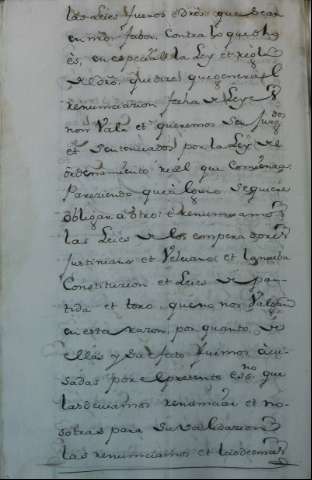 las Leies fueros e dros que sean
en nro fabor, Contra lo que dho
es, en especial la Ley et regla
del dro, que dice que general
renunciacion fecha de Leyes
non Vala et queremos ser juzgdos
et sentenciados por la Ley del
ordenamiento real que Comienza
Pareziendo que alguno se quiere
obligar a otro: e renunciamos
las Leies de los emperadores
Justiniano et Veleano et
Constitucion et Leies de par-
tida et toro, que no nos Valgan
en esta razon, por quanto de
ellas y su efecto fuimos abi-
sadas por el presente esno que
las deviamos renunciar et no-
sotras para su validacion
las renunciamos et todas demas